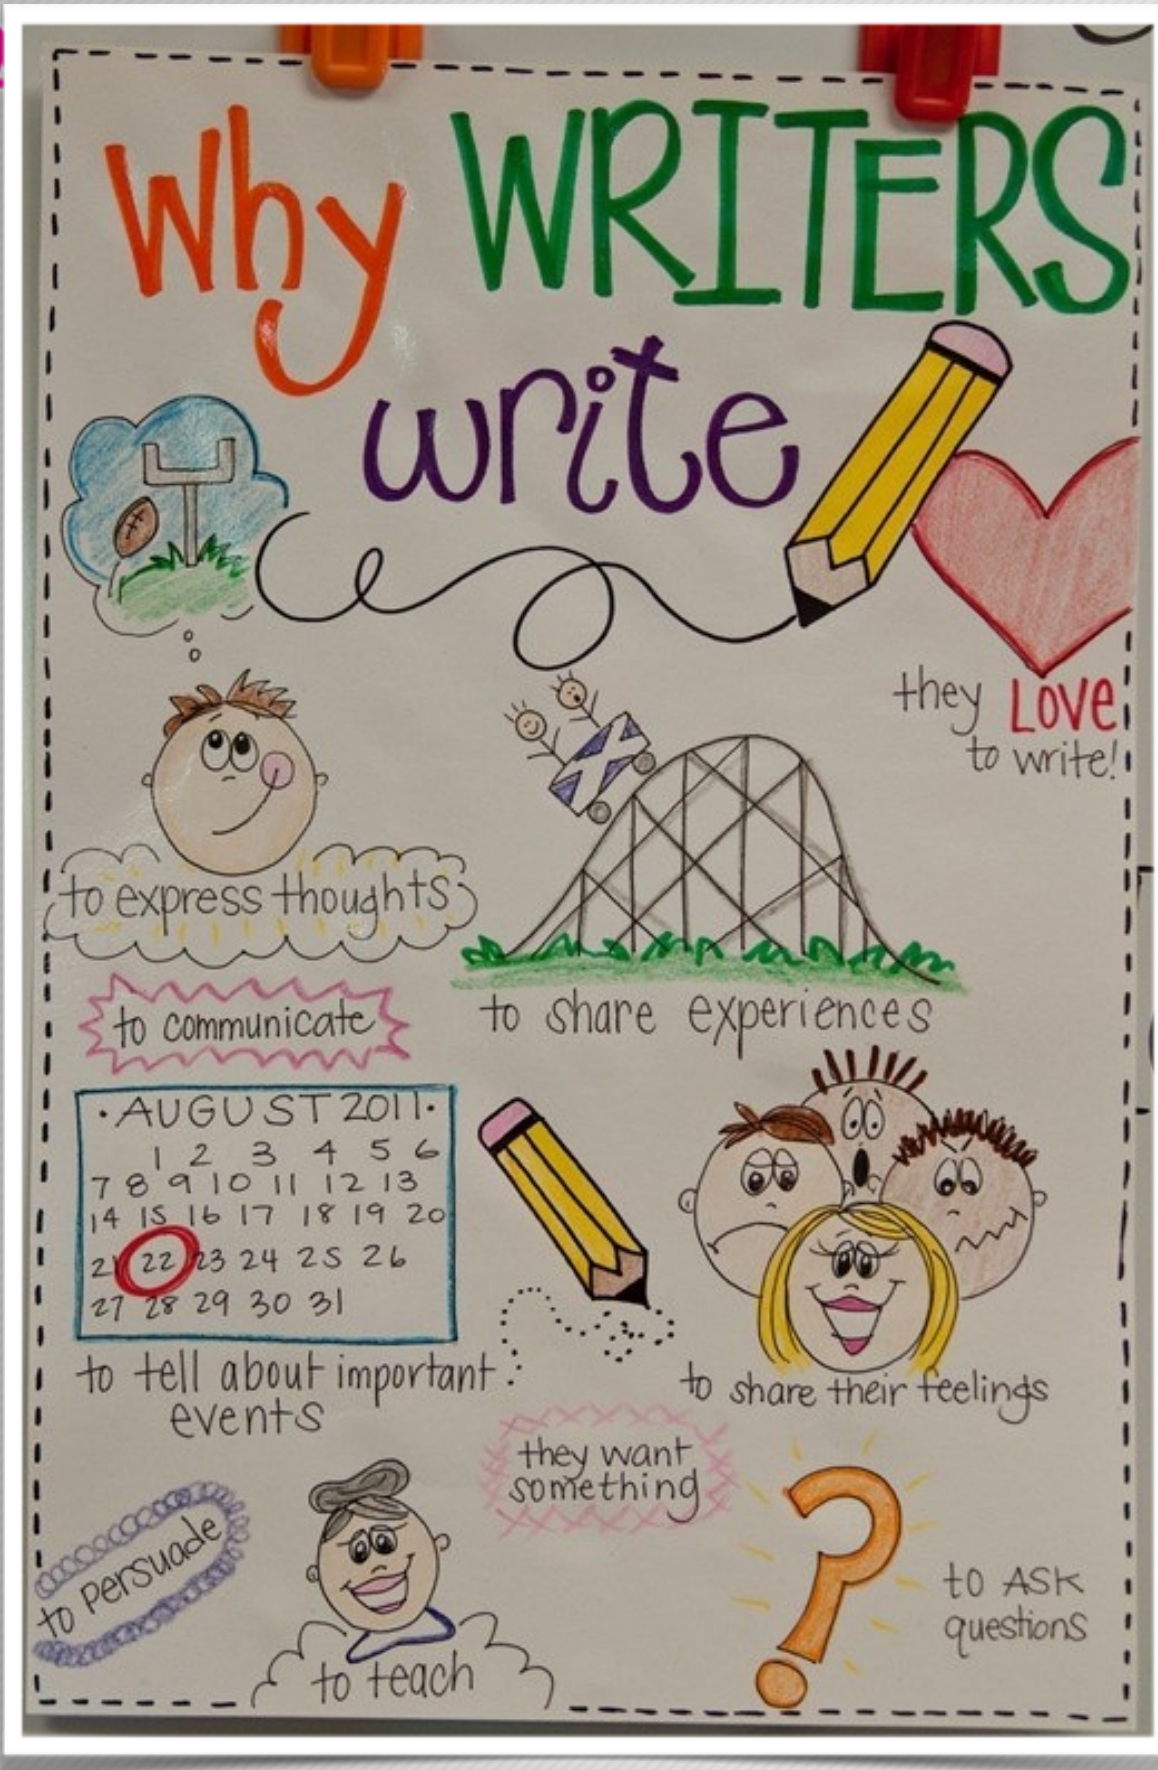 Why WRITERS
write
they LOVE
to write!
to express thoughts
to communicate
to share experiences
· AUGUST 2011 ·
1 2 3 4 5 6
7 8 9 10 11 12 13
14 15 16 17 18 19 20
21 22 23 24 25 26
27 28 29 30 31
to tell about important
events
to share their feelings
they want
something
to persuade
to teach
to ASK
questions